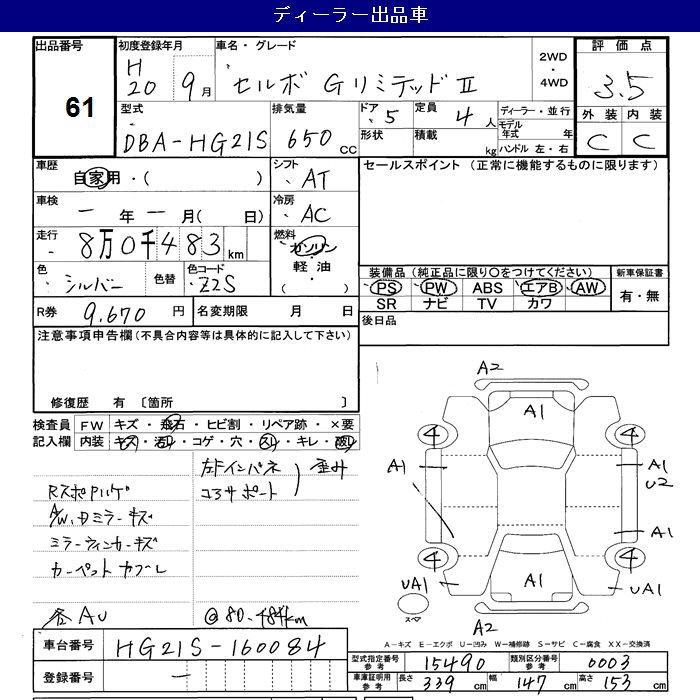 ディーラー出品車
出品番号
61
初度登録年月
H
20 9月
車名・グレード
セルボ GリミテッドII
2WD
・
4WD
評価点
3.5
外装 内装
C C
型式
DBA-HG21S
排気量
650 cc
ドア
5
形状
定員
4人
積載
kg
ディーラー・並行
モデル
年式 年
ハンドル 左・右
車歴
自家用・( )
シフト
AT
車検
一年一月( 日)
冷房
AC
走行
8万0千483 km
燃料
ガソリン
・
軽油
・
( )
色
シルバー
色替
色コード
Z2S
R券 9.670 円
名変期限 月 日
セールスポイント (正常に機能するものに限ります)
装備品(純正品に限り○をつけてください)
PS PW ABS エアB AW
SR ナビ TV カワ
新車保証書
有・無
後日品
注意事項申告欄(不具合内容等は具体的に記入して下さい)
修復歴 有 〔箇所 〕
検査員
記入欄
FW キズ・飛石・ヒビ割・リペア跡・×要
内装 キズ・汚レ・コゲ・穴・スレ・キレ・
左Fインパネ
コアサポート
歪み
RスポPハゲ
A/W、Dミラーキズ
ミラーウィンカーキズ
カーペットカブレ
各AU
@80.484km
A2
A1
4 4
A1
A1
U2
A1
4 4
UA1
A1
UA1
スペア
A2
A-キズ E-エクボ U-凹み W-補修跡 S-サビ C-腐食 XX-交換済
車台番号 HG21S-160084
登録番号 —
型式指定番号
参考
15490
類別区分番号
参考
0003
車庫証明用
参考
長さ 339 cm 幅 147 cm 高さ 153 cm